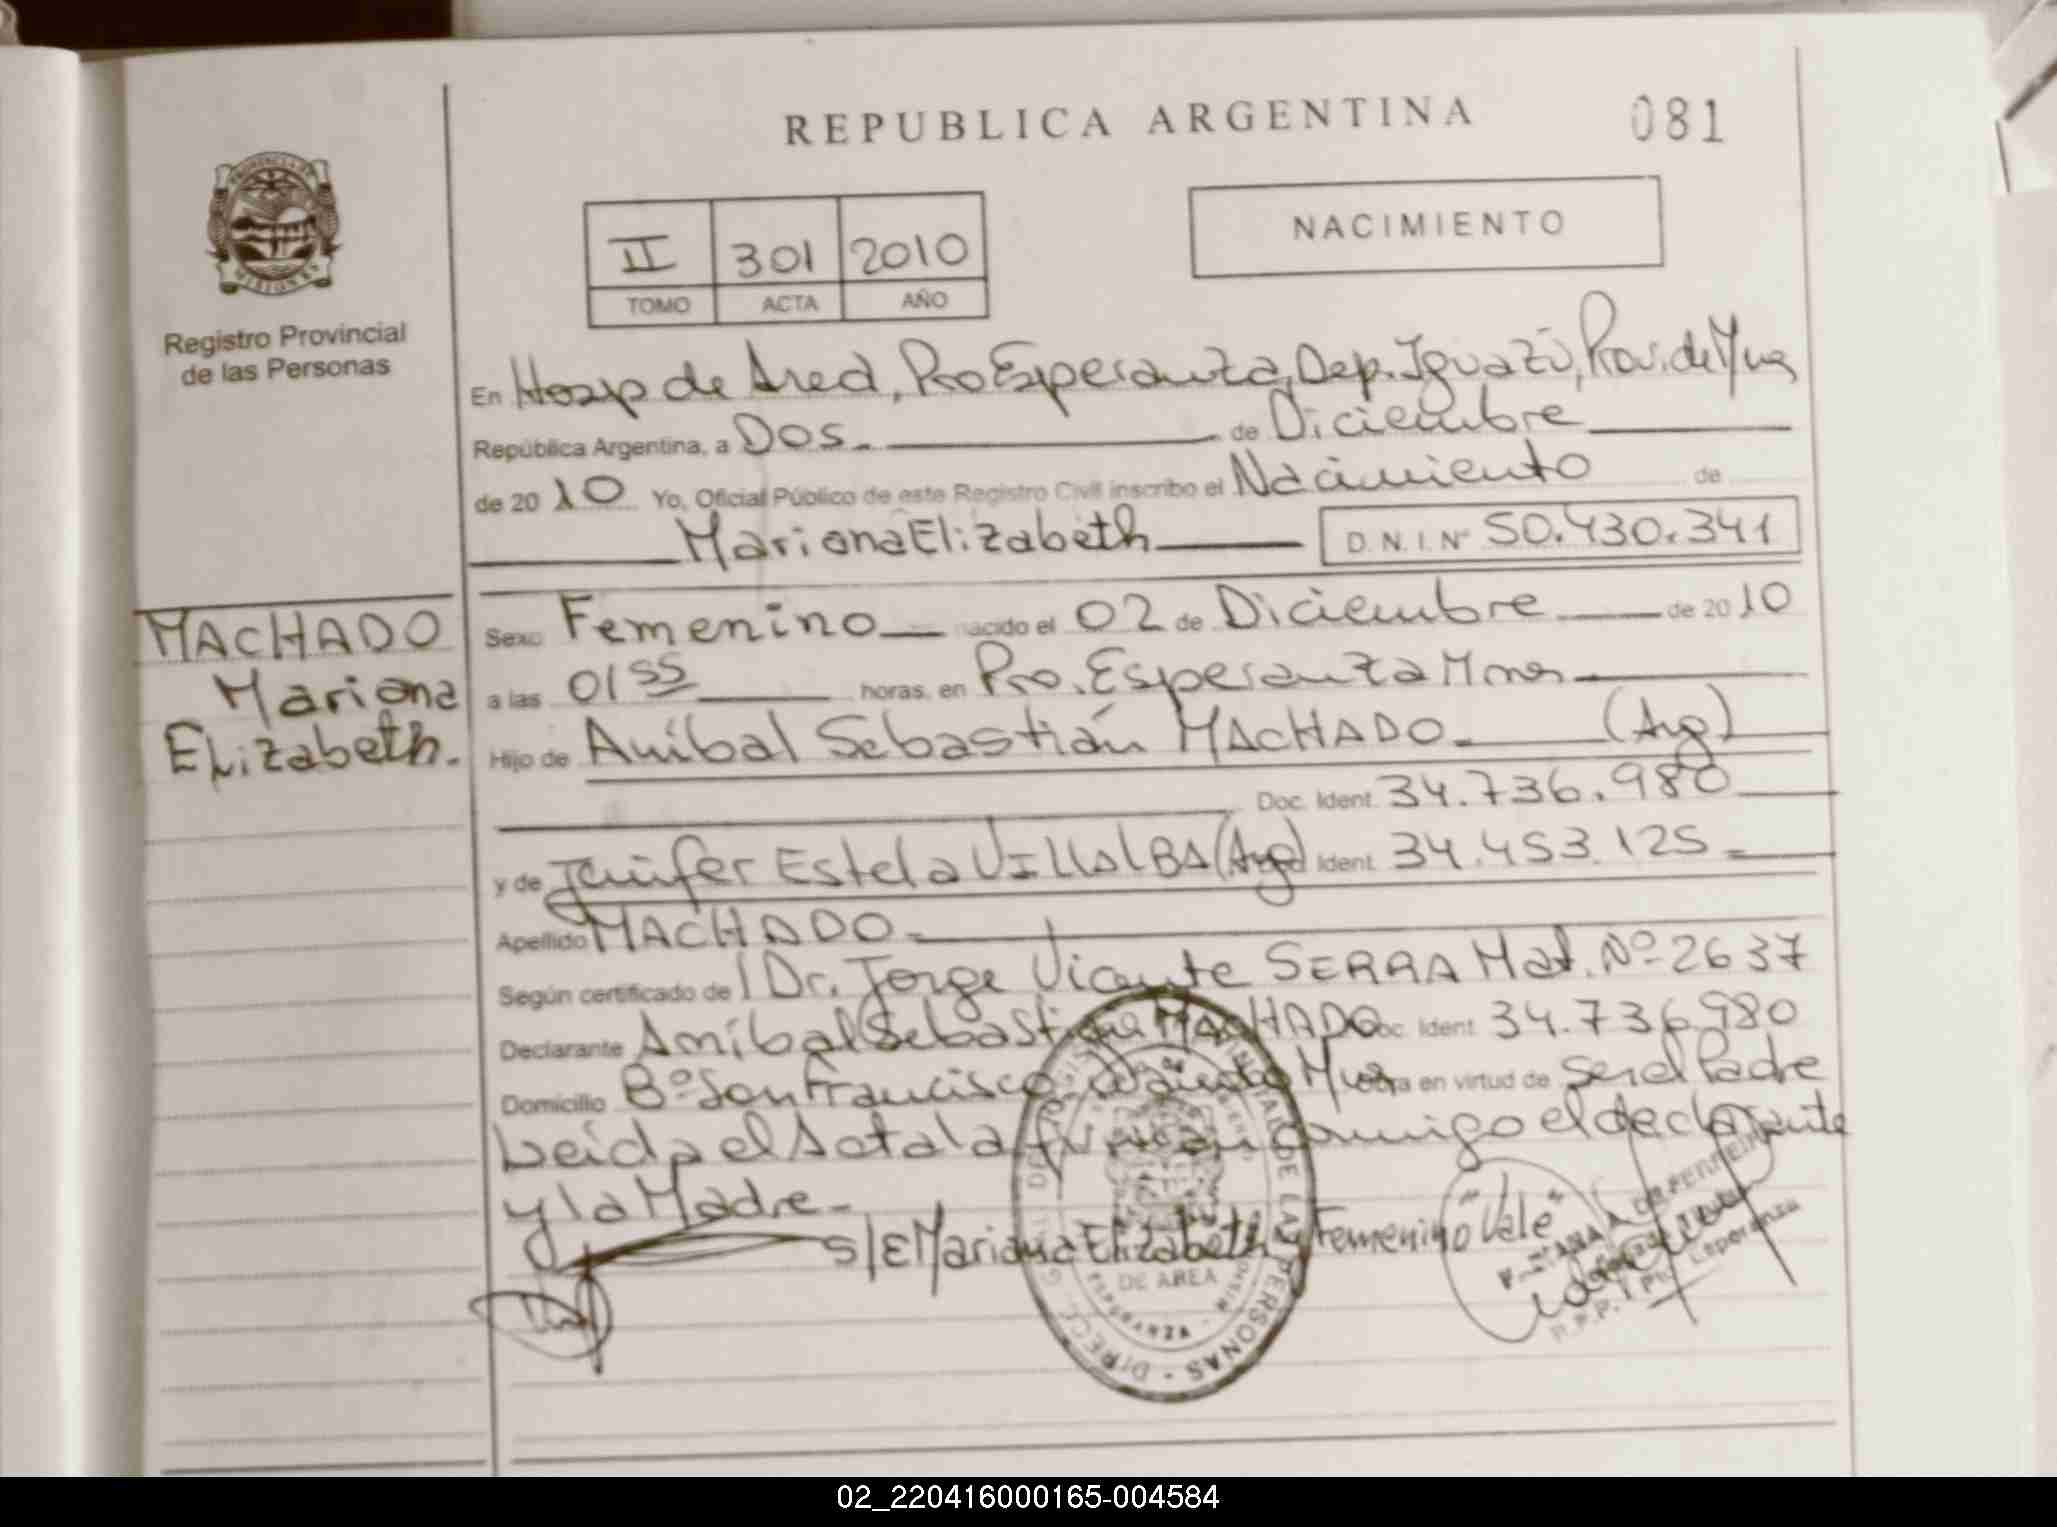 REPUBLICA ARGENTINA
081
II 301 2010
TOMO ACTA AÑO
NACIMIENTO
Registro Provincial
de las Personas
En Hosp de Area, Pto Esperanza, Dep. Iguazú, Prov. de Mnes
República Argentina, a Dos. de Diciembre
de 2010 Yo, Oficial Público de este Registro Civil inscribo el Nacimiento de
Mariana Elizabeth D.N.I. Nº 50.430.341
MACHADO
Mariana
Elizabeth.
Sexo Femenino nacido el 02 de Diciembre de 2010
a las 01 55 horas, en Pto. Esperanza Mnes
Hijo de Aníbal Sebastián MACHADO. (Arg)
Doc. Ident. 34.736.980
y de Jenifer Estela VILLALBA (Arg) Ident. 34.453.125
Apellido MACHADO
Según certificado de Dr. Jorge Vicente SERRA Mat. Nº 2637
Declarante Aníbal Sebastián MACHADO Doc. Ident 34.736.980
Domicilio Bº San Francisco Mnes Obra en virtud de ser el Padre
Leída el Acta la firman conmigo el declarante
y la Madre
S/E Mariana Elizabeth, Femenino "Vale"
DE AREA
ESPERANZA
DE LAS PERSONAS - DIRECC. G
Pto. Esperanza
02_220416000165-004584